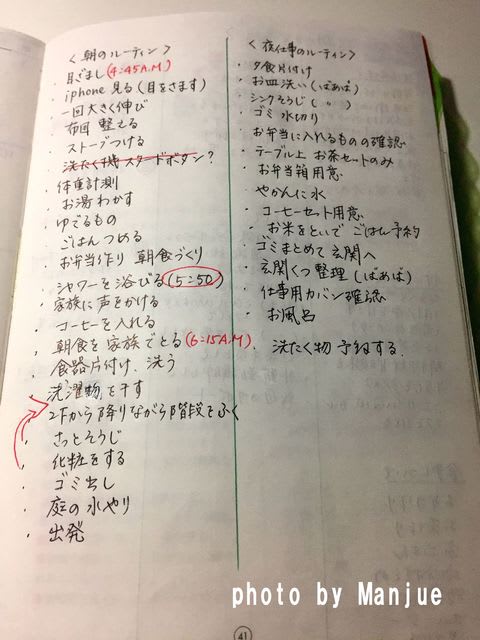 〈朝のルーティン〉
・目ざまし(4:45A.M)
・iphone見る(目をさます)
・一回大きく伸び
布団 整える
・ストーブつける
・洗たく機 スタートボタン?
・体重計測
・お湯わかす
・ゆでるもの
・ごはんつめる
・お弁当作り 朝食づくり
・シャワーを浴びる(5:50)
・家族に声をかける
・コーヒーを入れる
・朝食を家族でとる(6:15A.M)
・食器片付け、洗う
・洗濯物を干す
・2Fから降りながら階段をふく
・さっとそうじ
・化粧をする
・ゴミ出し
・庭の水やり
・出発
〈夜仕事のルーティン〉
・夕食片付け
・お皿洗い(ばあば)
・シンクそうじ(〃)
・ゴミ 水切り
・お弁当に入れるものの確認
・テーブル上 お茶セットのみ
・お弁当箱用意
・やかんに水
・コーヒーセット用意
・お米をといで ごはん予約
・ゴミまとめて 玄関へ
・玄関くつ整理(ばあば)
・仕事用カバン確認
・お風呂
洗たく物 予約する.
41
photo by Manjue